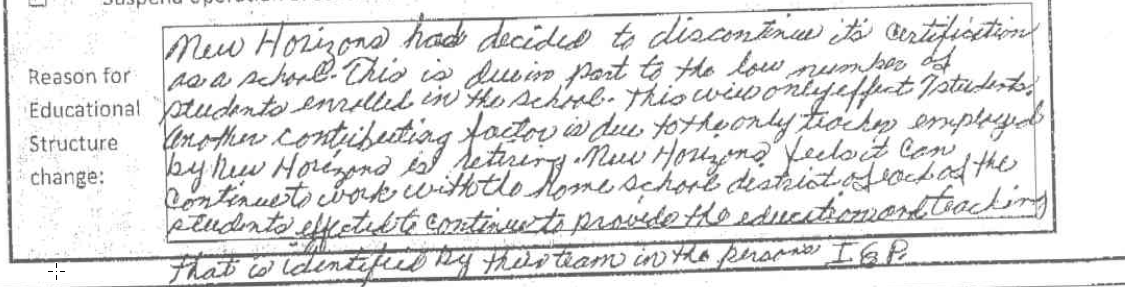 Suspend operation of
Reason for
Educational
Structure
change:
New Horizons had decided to discontinue it's certification
as a school. This is due in part to the low number of
students enrolled in the school. This will only effect 7 students.
Another contributing factor is due to the only teacher employed
by New Horizons is retiring. New Horizons feels it can
continue to work with the home school district of each of the
students effected to continue to provide the education and teaching
that is identified by their team in the persons I.E.P.